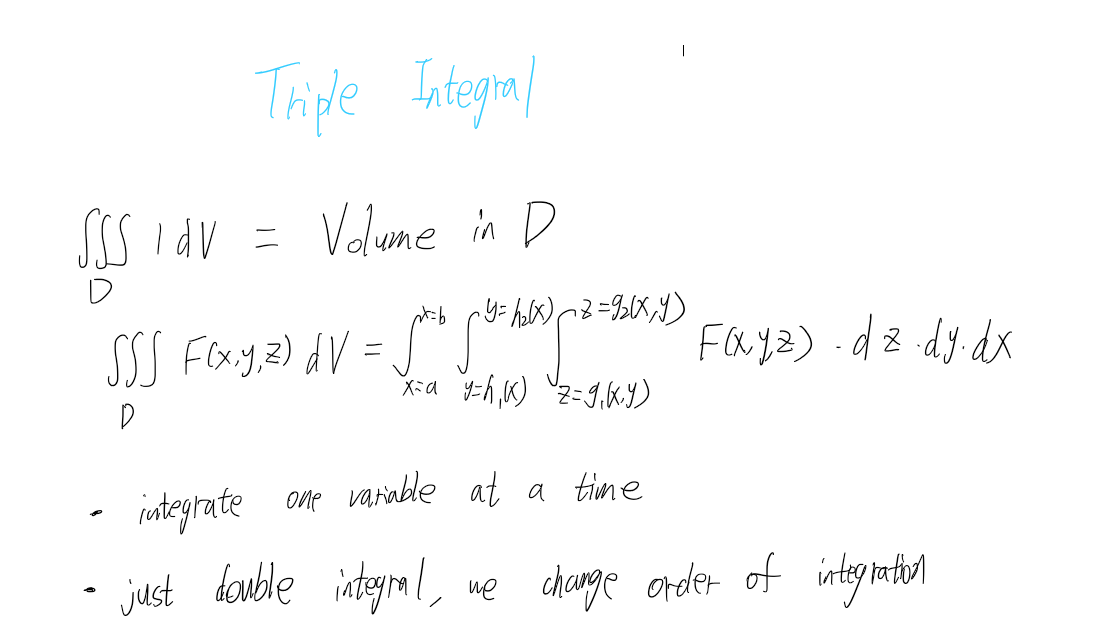 Triple Integral
∭_D 1 dV = Volume in D
∭_D F(x,y,z) dV = ∫_{x=a}^{x=b} ∫_{y=h₁(x)}^{y=h₂(x)} ∫_{z=g₁(x,y)}^{z=g₂(x,y)} F(x,y,z) · dz · dy · dx
• integrate one variable at a time
• just double integral, we change order of integration